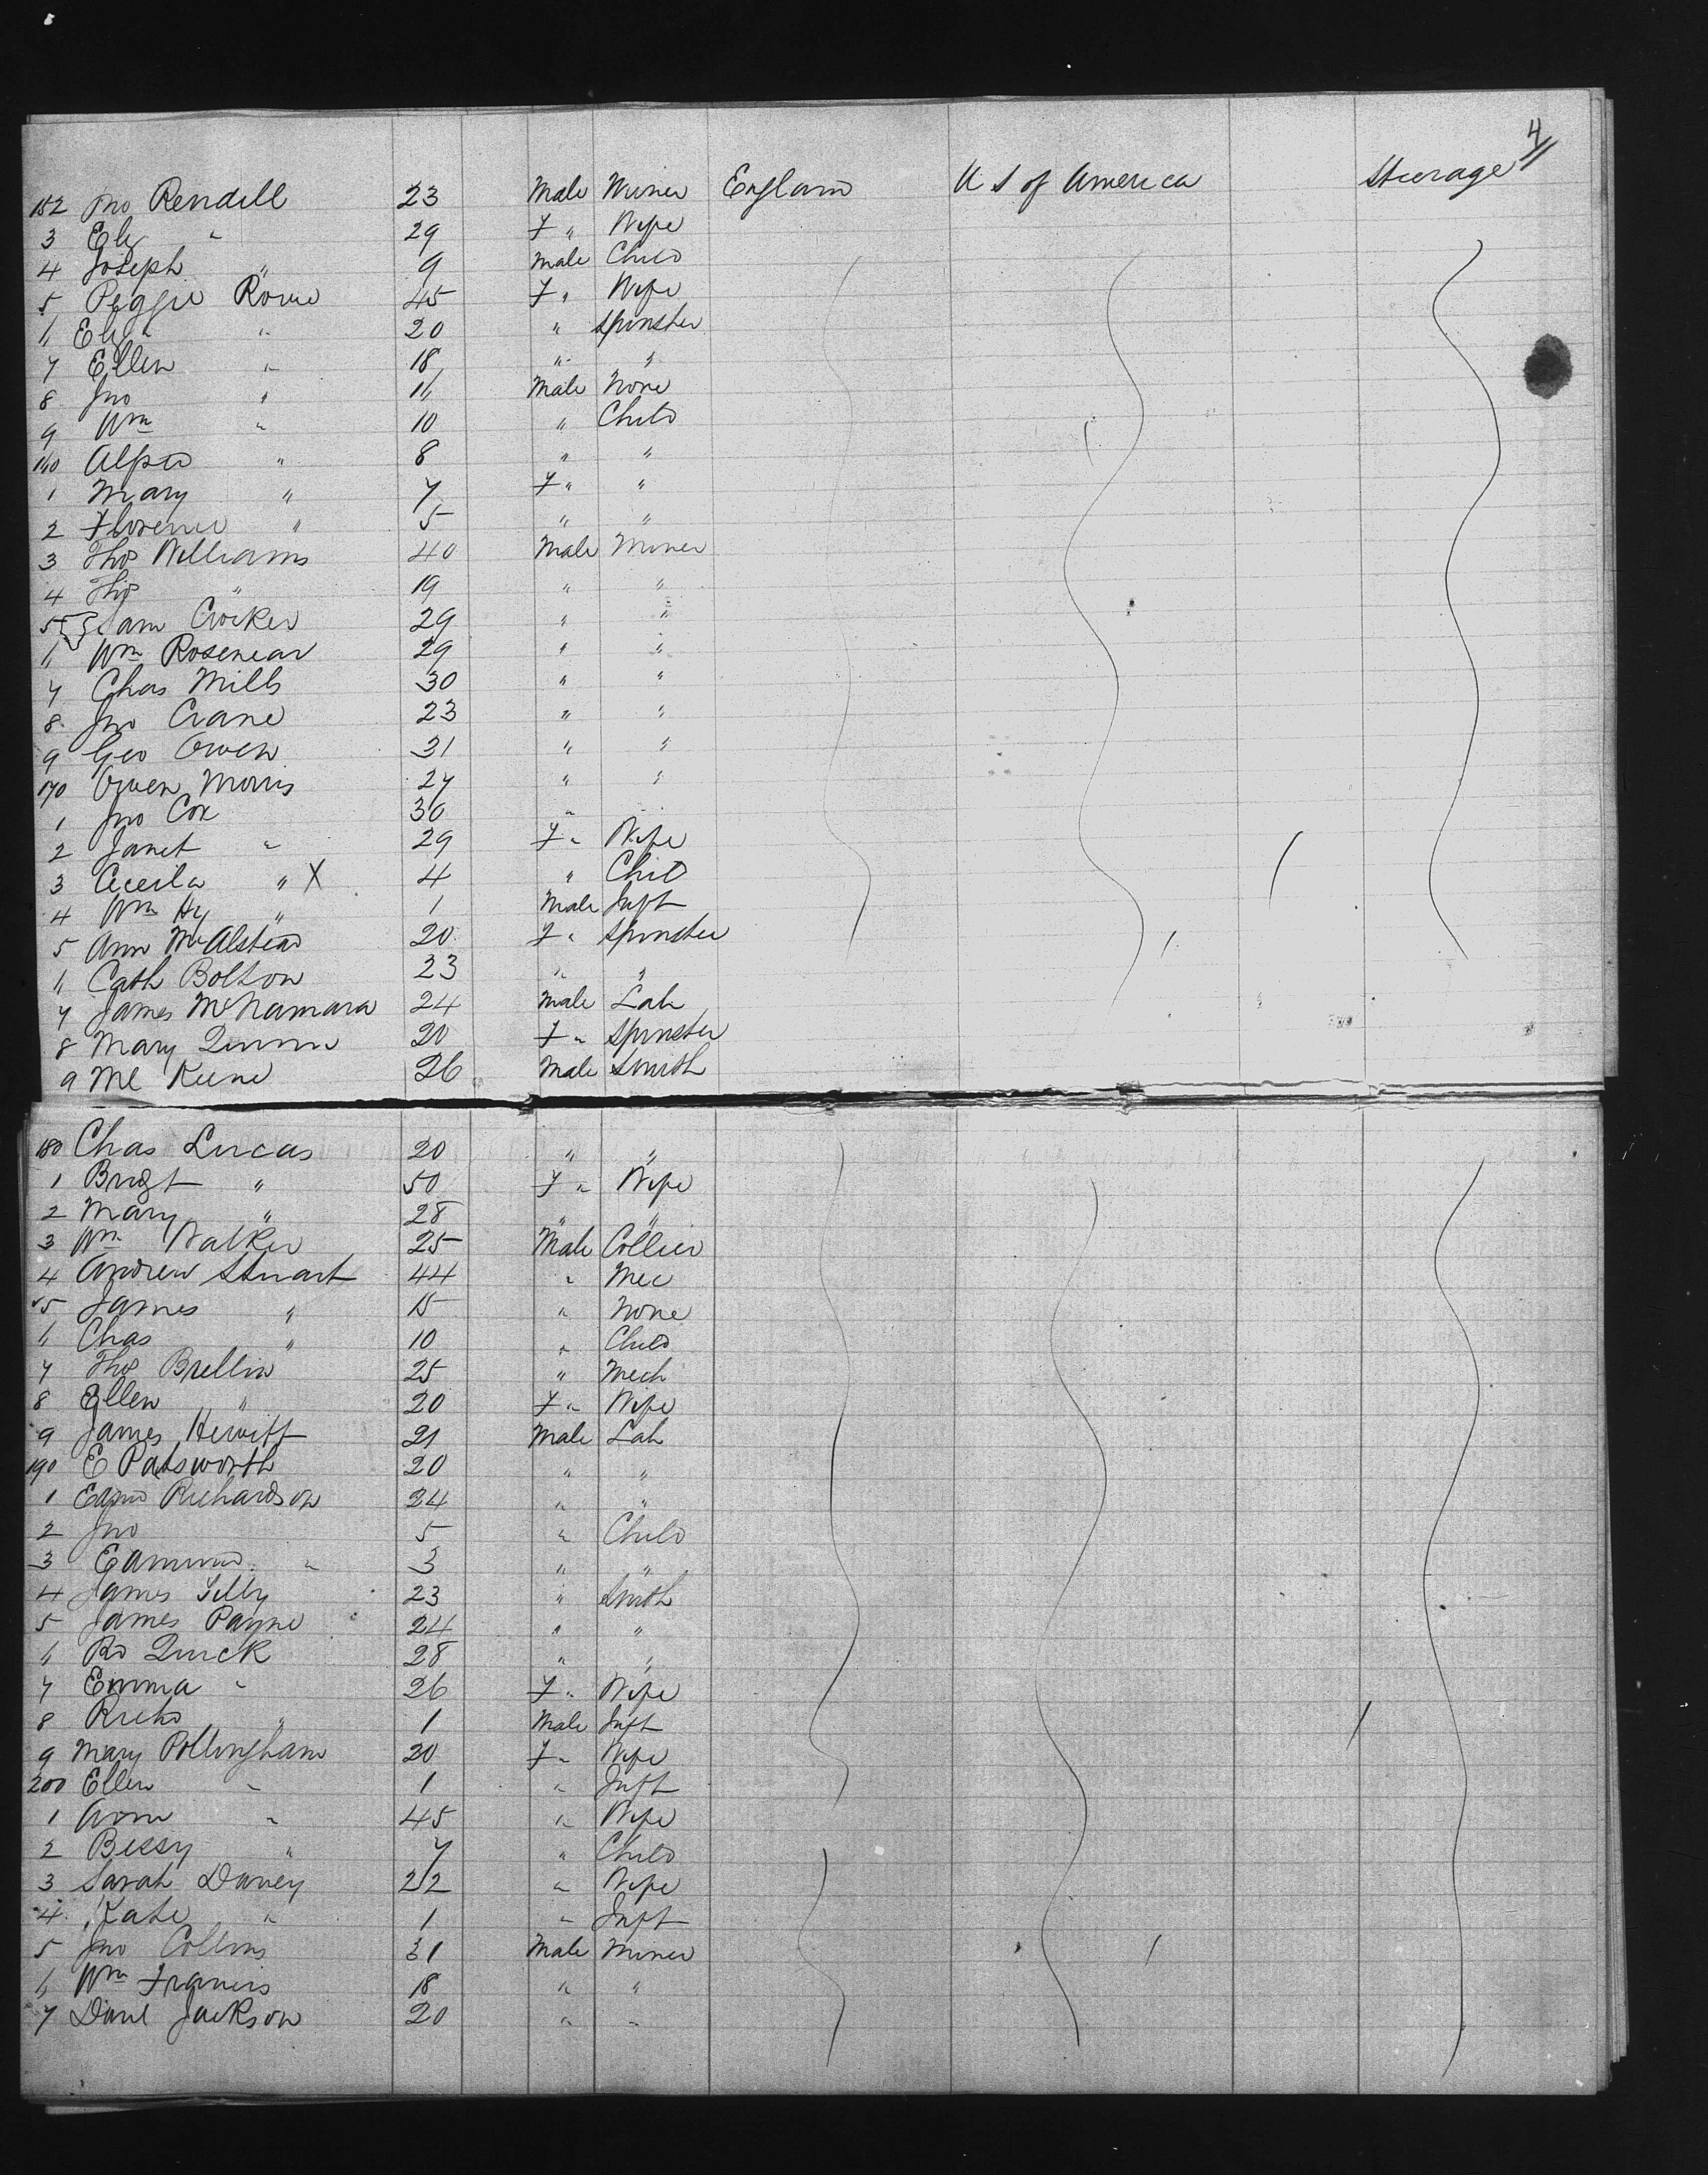 4
152 Jno Rendell 23 Male Miner England U S of America Steerage
3 Eliz " 29 F " Wife
4 Joseph " 9 Male Child
5 Peggie Rowe 45 F " Wife
6 Eliz " 20 " Spinster
7 Ellen " 18 " "
8 Jno " 16 Male None
9 Wm " 10 " Child
160 Alfred " 8 " "
1 Mary " 7 F " "
2 Florence " 5 " "
3 Thos Williams 40 Male Miner
4 Thos " 19 " "
5 Sam Crocker 29 " "
6 Wm Rosenear 29 " "
7 Chas Mills 30 " "
8 Jno Crane 23 " "
9 Geo Owen 31 " "
170 Owen Morris 27 " "
1 Jno Cox 30 "
2 Janet " 29 F " Wife
3 Cecila " X 4 " Child
4 Wm Hy " 1 Male Inft
5 Ann McAlstead 20 F " Spinster
6 Cath Bolton 23 " "
7 James McNamara 24 Male Lab
8 Mary Quinn 20 F " Spinster
9 Ml Keene 26 Male Smith
180 Chas Lucas 20 " "
1 Brigt " 50 F " Wife
2 Mary " 28 " "
3 Wm Walker 25 Male Collier
4 Andrew Stuart 44 " Mec
5 James " 15 " None
6 Chas " 10 " Child
7 Thos Brellin 25 " Mech
8 Ellen " 20 F " Wife
9 James Hewitt 21 Male Lab
190 E Patsworth 20 " "
1 Edmd Richardson 24 " "
2 Jno 5 " Child
3 Edmund " 3 " "
4 James Tilly 23 " Smith
5 James Payne 24 " "
6 Rd Quick 28 " "
7 Emma " 26 F " Wife
8 Richd " 1 Male Inft
9 Mary Pollingham 20 F " Wife
200 Ellen " 1 " Inft
1 Ann " 45 " Wife
2 Bessy " 7 " Child
3 Sarah Davey 22 " Wife
4 Kate " 1 " Inft
5 Jno Collins 31 Male Miner
6 Wm Francis 18 " "
7 Danl Jackson 20 " "